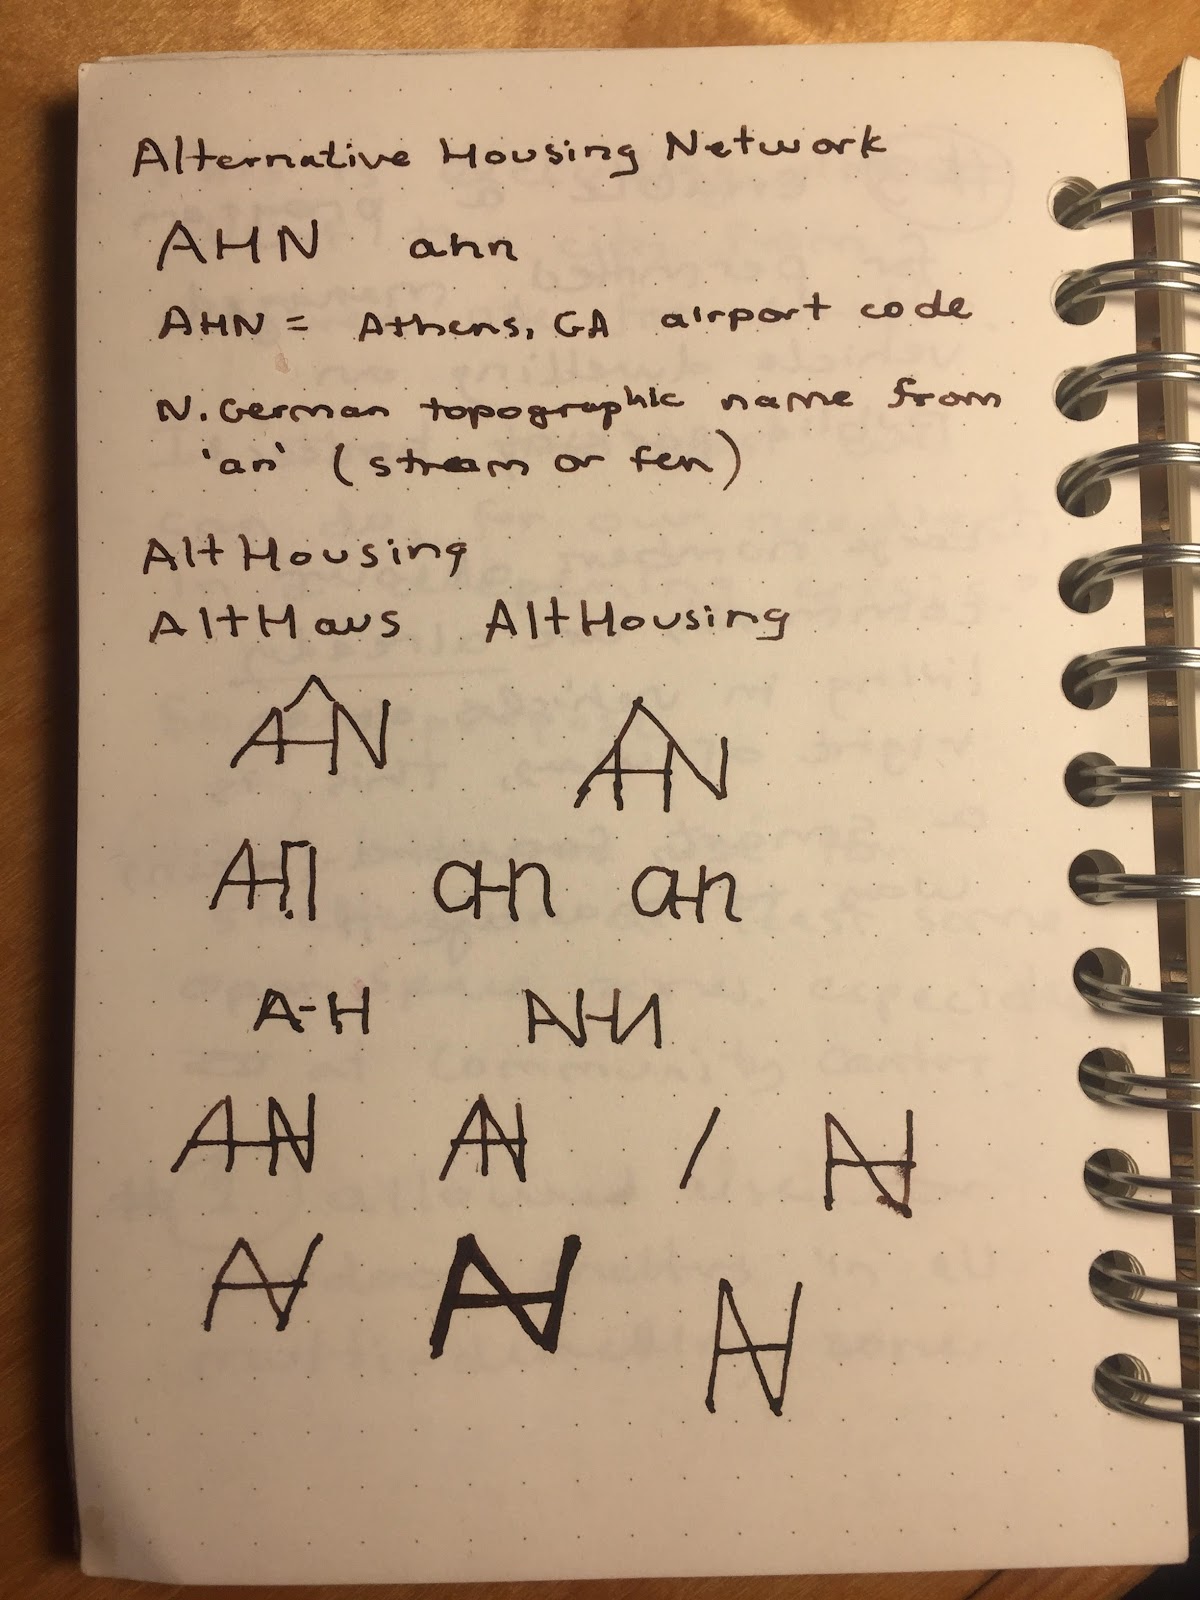 Alternative Housing Network
AHN ahn
AHN = Athens, GA airport code
N. German topographic name from
'an' (stream or fen)
AltHousing
AltHaus AltHousing
AHN AHN
AHn ahn ahn
A-H AHN
AHN AN / AN
AN AN AN